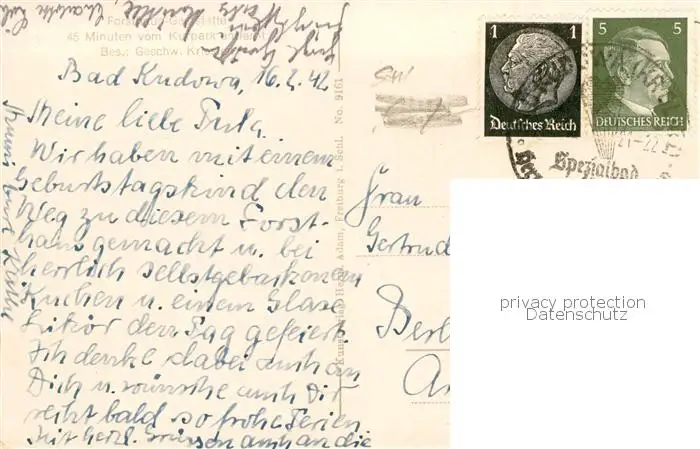 Forsthaus-Gaststätte
45 Minuten vom Kurpark entfernt
Bes.: Geschw.
Bad Kudowa, 16.2.42
Meine liebe
Wir haben mit einem
Geburtstagskind den
Weg zu diesem Forst-
haus gemacht u. bei
herrlich selbstgebackenem
Kuchen u. einem Glase
Likör den Tag gefeiert.
Ich denke dabei auch an
Dich u. wünsche auch Dir
recht bald so frohe Ferien
Mit herzl. Grüssen auch an die
Adam, Freiburg i. Schl. No. 9161
1 1
Deutsches Reich
5 5
DEUTSCHES REICH
Spezialbad
Frau
Gertrud
Berl
privacy protection
Datenschutz